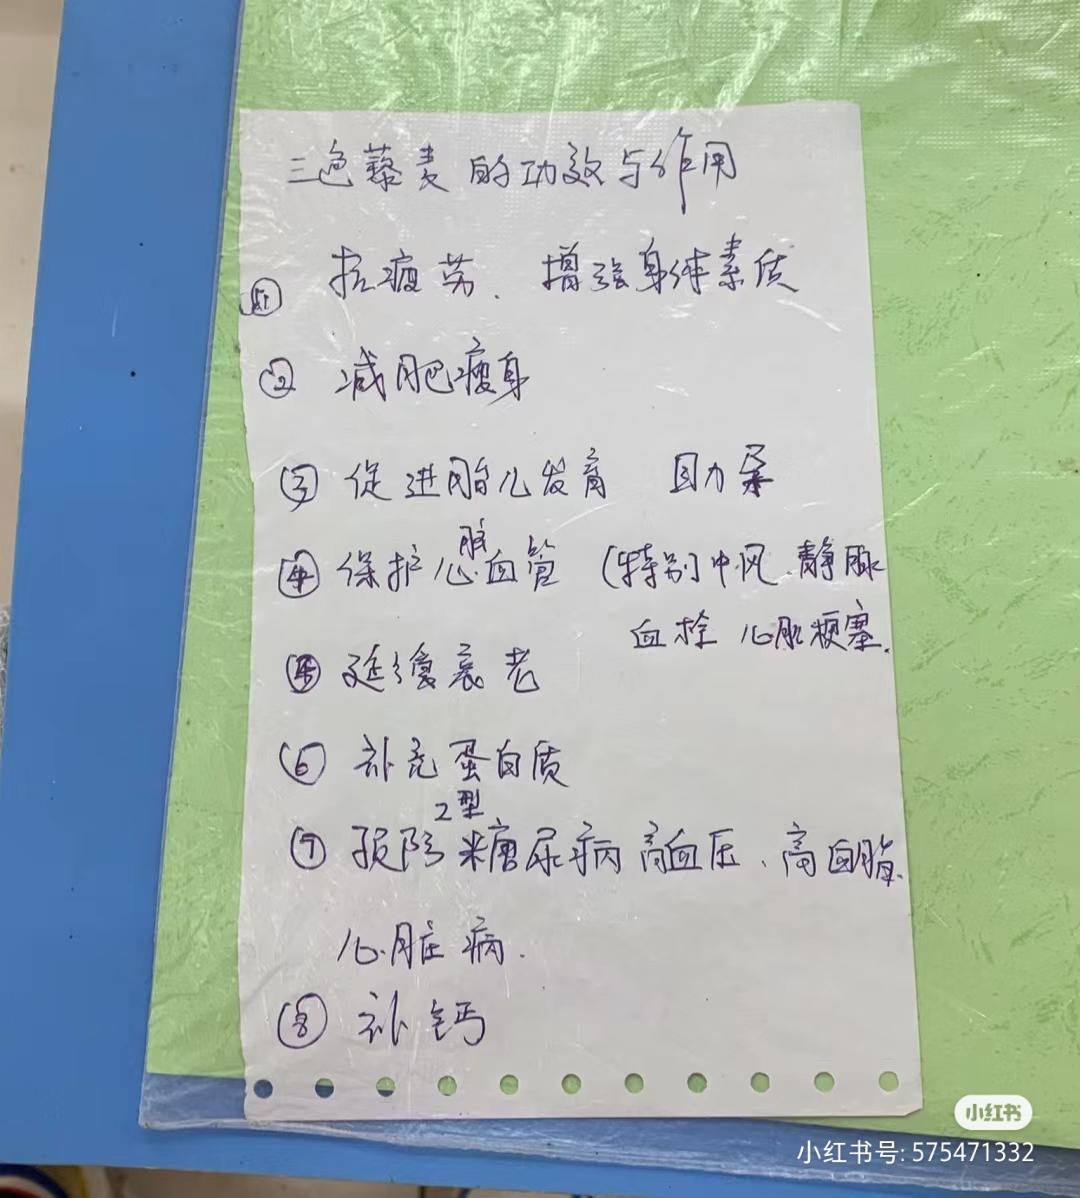 三色藜麦的功效与作用
① 抗疲劳、增强身体素质
② 减肥瘦身
③ 促进胎儿发育
④ 保护心脑血管 (特别中风、静脉
血栓 心肌梗塞.
⑤ 延缓衰老
⑥ 补充蛋白质
⑦ 预防2型糖尿病高血压、高血脂.
心脏病.
⑧ 补钙
小红书
小红书号: 575471332